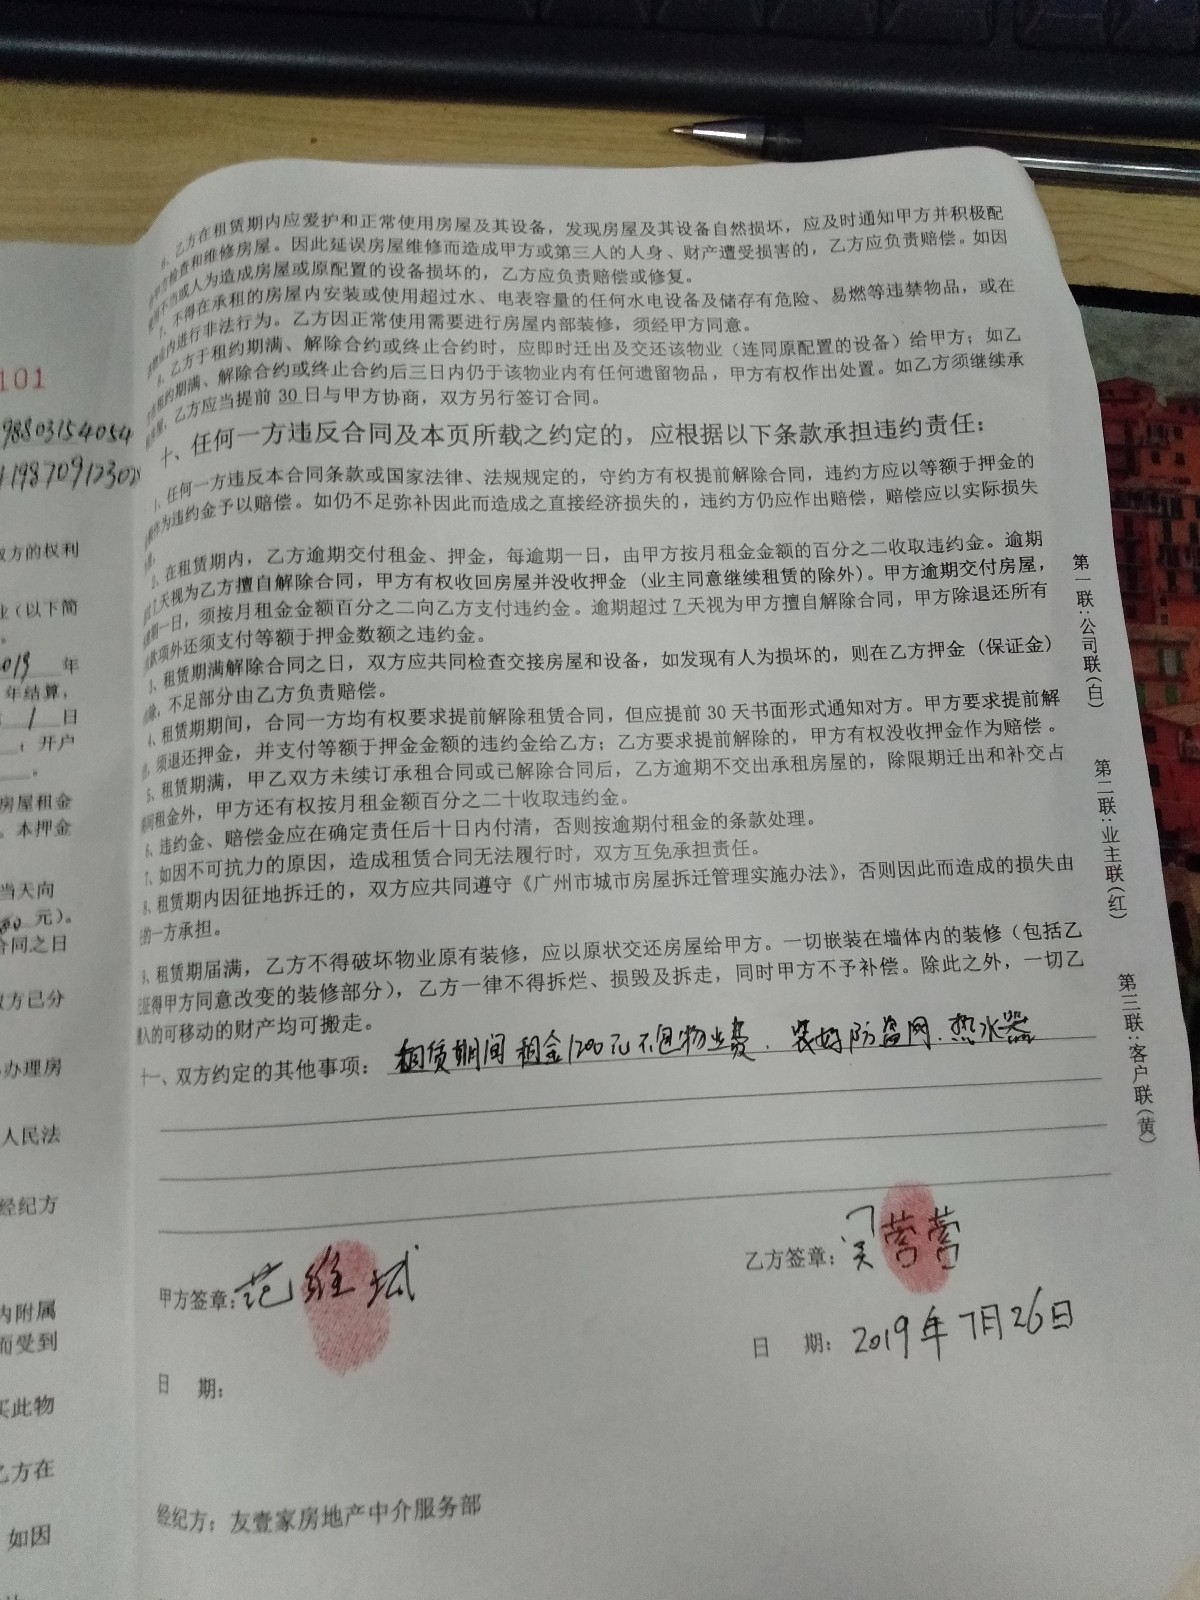 6、乙方在租赁期内应爱护和正常使用房屋及其设备，发现房屋及其设备自然损坏，应及时通知甲方并积极配
检查和维修房屋。因此延误房屋维修而造成甲方或第三人的人身、财产遭受损害的，乙方应负责赔偿。如因
不当或人为造成房屋或原配置的设备损坏的，乙方应负责赔偿或修复。
7、不得在承租的房屋内安装或使用超过水、电表容量的任何水电设备及储存有危险、易燃等违禁物品，或在
内进行非法行为。乙方因正常使用需要进行房屋内部装修，须经甲方同意。
8、乙方于租约期满、解除合约或终止合约时，应即时迁出及交还该物业（连同原配置的设备）给甲方；如乙
约期满、解除合约或终止合约后三日内仍于该物业内有任何遗留物品，甲方有权作出处置。如乙方须继续承
，乙方应当提前 30 日与甲方协商，双方另行签订合同。
十、任何一方违反合同及本页所载之约定的，应根据以下条款承担违约责任：
1、任何一方违反本合同条款或国家法律、法规规定的，守约方有权提前解除合同，违约方应以等额于押金的
作为违约金予以赔偿。如仍不足弥补因此而造成之直接经济损失的，违约方仍应作出赔偿，赔偿应以实际损失
2、在租赁期内，乙方逾期交付租金、押金，每逾期一日，由甲方按月租金金额的百分之二收取违约金。逾期
天视为乙方擅自解除合同，甲方有权收回房屋并没收押金（业主同意继续租赁的除外）。甲方逾期交付房屋，
一日，须按月租金金额百分之二向乙方支付违约金。逾期超过 7 天视为甲方擅自解除合同，甲方除退还所有
款项外还须支付等额于押金数额之违约金。
3、租赁期满解除合同之日，双方应共同检查交接房屋和设备，如发现有人为损坏的，则在乙方押金（保证金）
除，不足部分由乙方负责赔偿。
4、租赁期期间，合同一方均有权要求提前解除租赁合同，但应提前 30 天书面形式通知对方。甲方要求提前解
，须退还押金，并支付等额于押金金额的违约金给乙方；乙方要求提前解除的，甲方有权没收押金作为赔偿。
5、租赁期满，甲乙双方未续订承租合同或已解除合同后，乙方逾期不交出承租房屋的，除限期迁出和补交占
租金外，甲方还有权按月租金额百分之二十收取违约金。
6、违约金、赔偿金应在确定责任后十日内付清，否则按逾期付租金的条款处理。
7、如因不可抗力的原因，造成租赁合同无法履行时，双方互免承担责任。
8、租赁期内因征地拆迁的，双方应共同遵守《广州市城市房屋拆迁管理实施办法》，否则因此而造成的损失由
的一方承担。
9、租赁期届满，乙方不得破坏物业原有装修，应以原状交还房屋给甲方。一切嵌装在墙体内的装修（包括乙
征得甲方同意改变的装修部分），乙方一律不得拆烂、损毁及拆走，同时甲方不予补偿。除此之外，一切乙
入的可移动的财产均可搬走。
十一、双方约定的其他事项：租赁期间租金1200元不包物业费．装好防盗网．热水器
甲方签章：范维城
乙方签章：吴营营
日 期：2019年7月26日
日 期：
经纪方：友壹家房地产中介服务部
第一联：公司联（白） 第二联：业主联（红） 第三联：客户联（黄）
101
98803154054
双方的权利
业（以下简
2019 年
年结算，
1 日
；开户
房屋租金
。本押金
当天向
元）。
合同之日
双方已分
办理房
人民法
经纪方
内附属
而受到
买此物
乙方在
如因